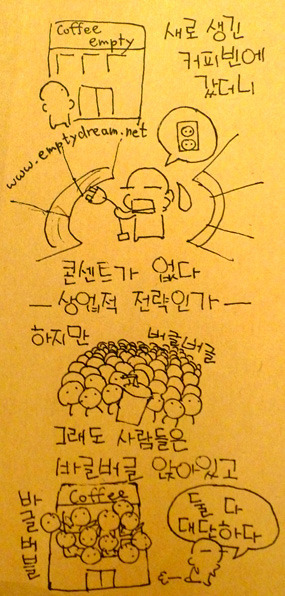 Coffee
empty
새로 생긴
커피빈에
갔더니
www.emptydream.net
콘센트가 없다
- 상업적 전략인가 -
하지만
버글버글
그래도 사람들은
바글버글 앉아있고
Coffee
바글버글
둘 다
대단하다